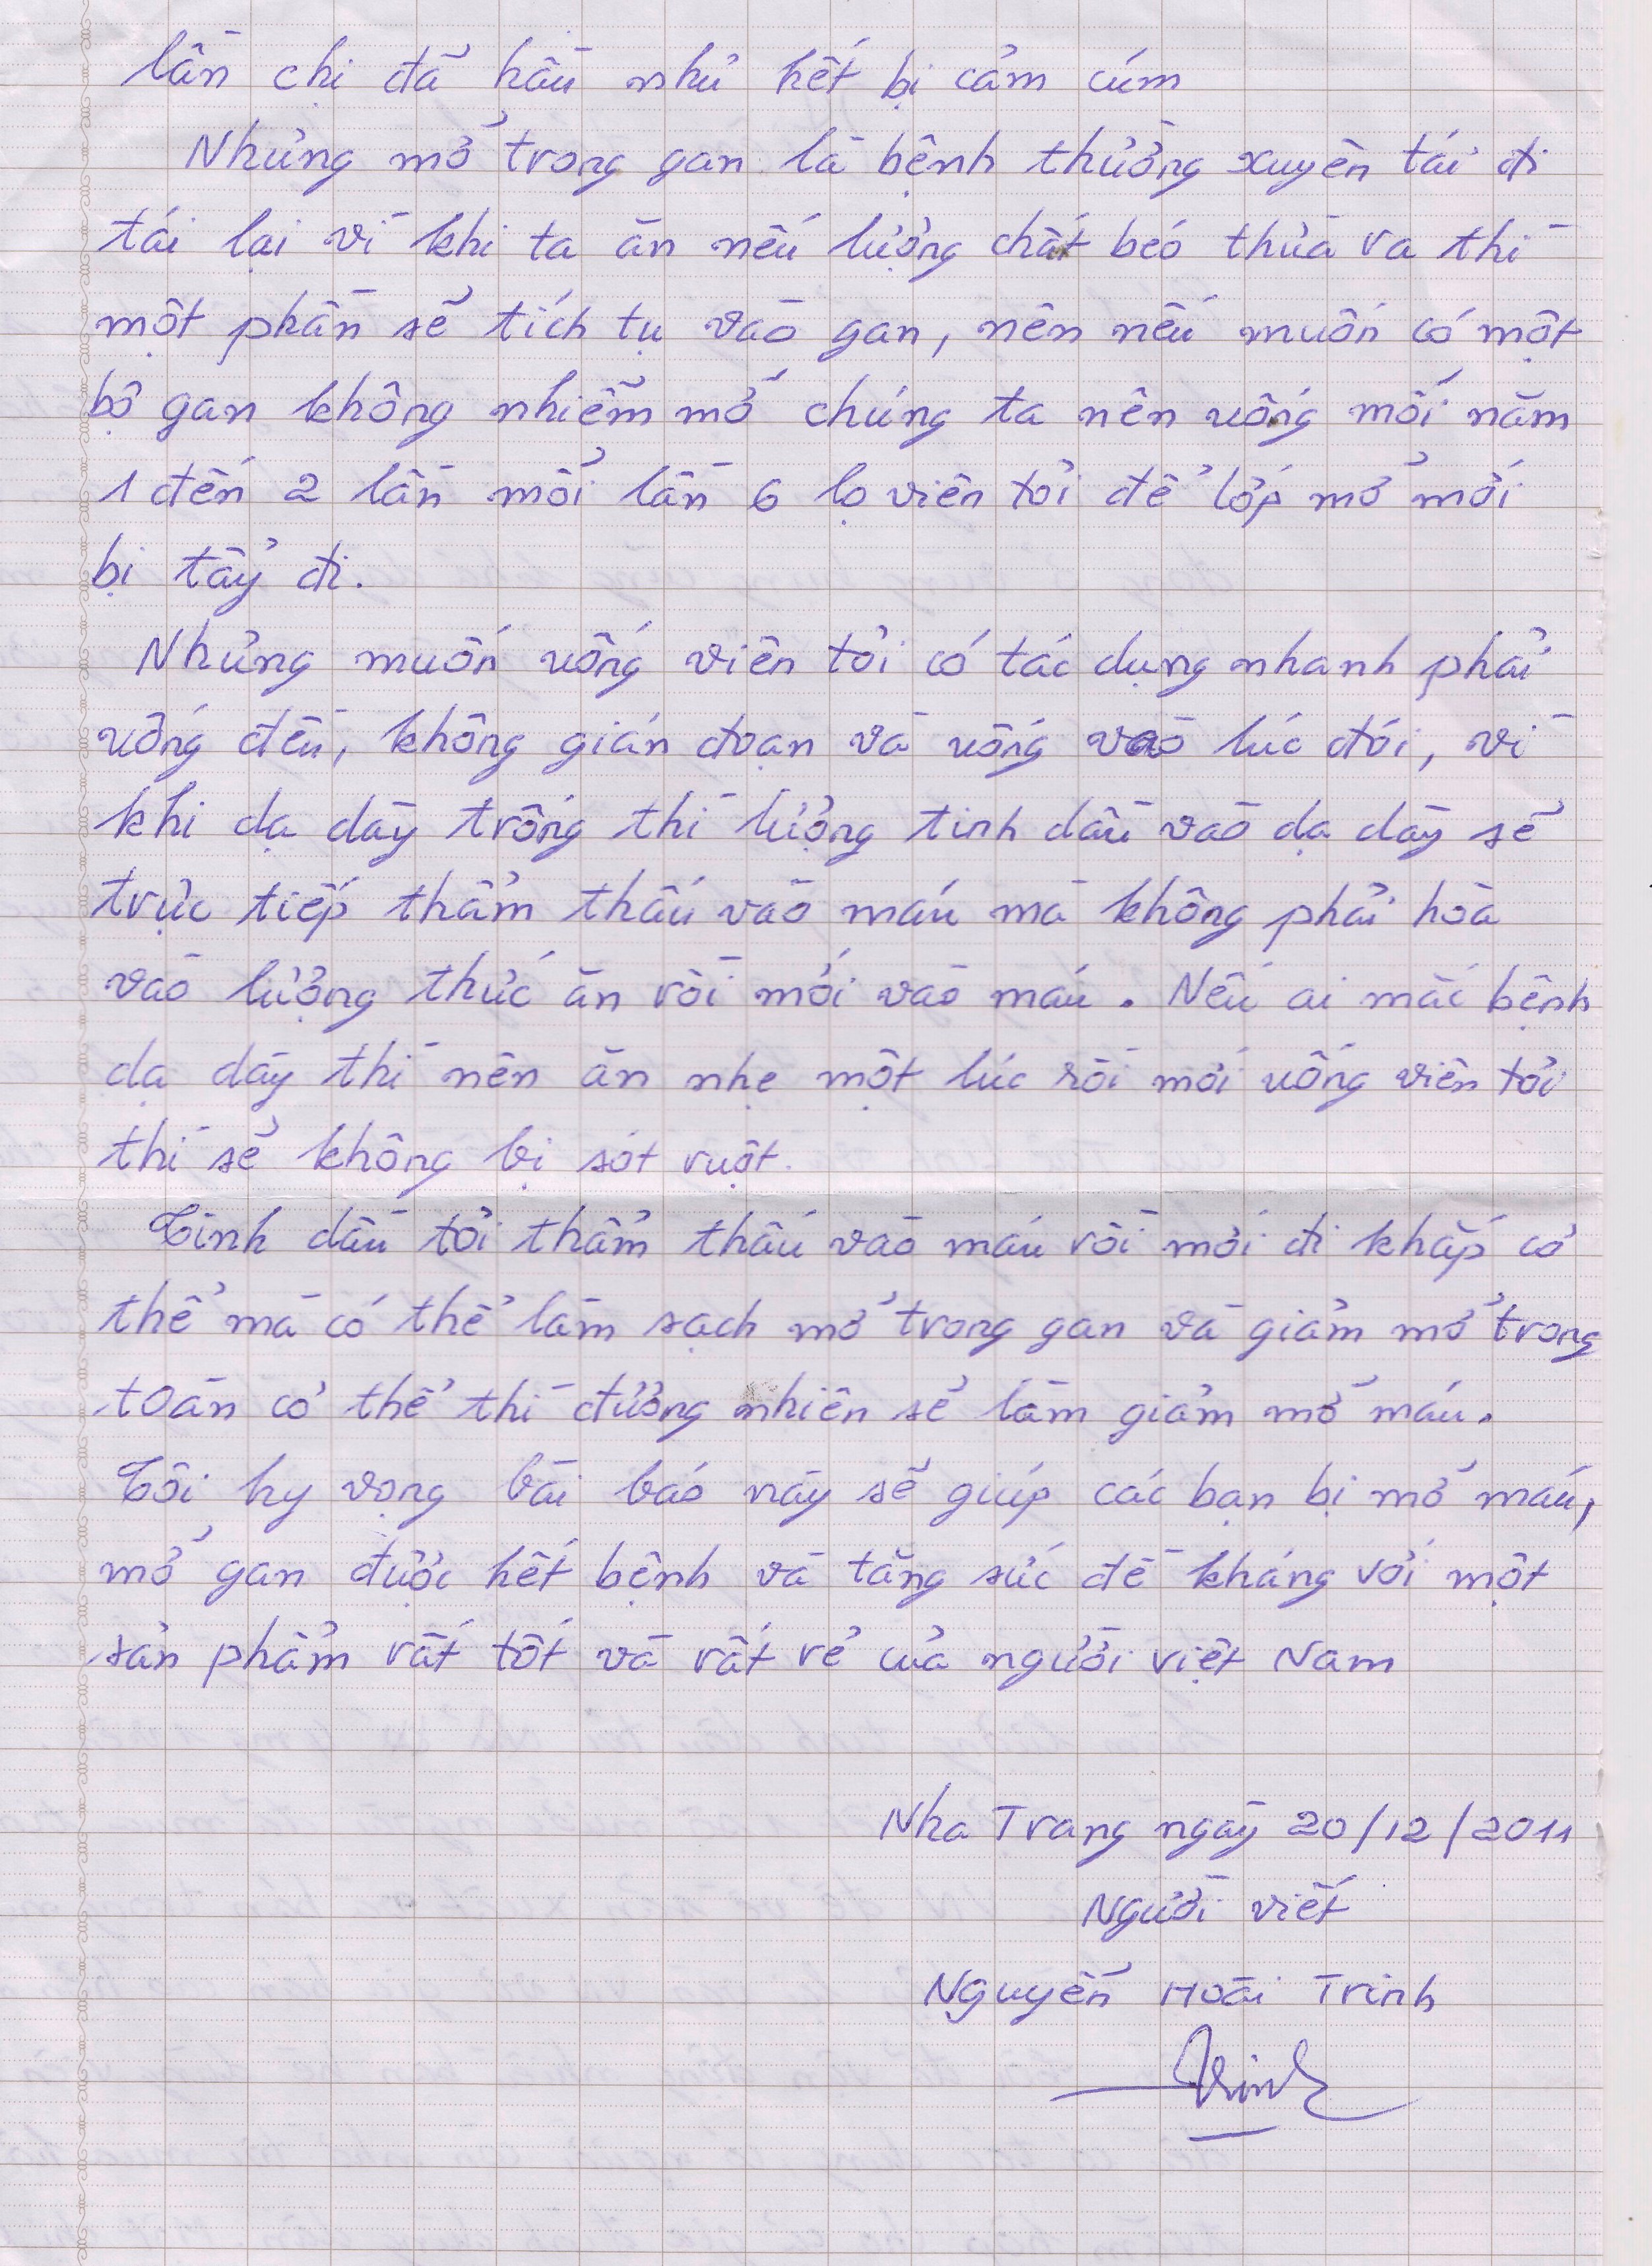 lần chị đã hầu như hết bị cảm cúm
Nhưng mỡ trong gan là bệnh thường xuyên tái đi
tái lại vì khi ta ăn nếu lượng chất béo thừa ra thì
một phần sẽ tích tụ vào gan, nên nếu muốn có một
bộ gan không nhiễm mỡ chúng ta nên uống mỗi năm
1 đến 2 lần mỗi lần 6 lọ viên tỏi để lớp mỡ mới
bị tẩy đi.
Nhưng muốn uống viên tỏi có tác dụng nhanh phải
uống đều, không gián đoạn và uống vào lúc đói, vì
khi dạ dày trống thì lượng tinh dầu vào dạ dày sẽ
trực tiếp thẩm thấu vào máu mà không phải hòa
vào lượng thức ăn rồi mới vào máu. Nếu ai mắc bệnh
dạ dày thì nên ăn nhẹ một lúc rồi mới uống viên tỏi
thì sẽ không bị sót ruột.
Tinh dầu tỏi thẩm thấu vào máu rồi mới đi khắp cơ
thể mà có thể làm sạch mỡ trong gan và giảm mỡ trong
toàn cơ thể thì đương nhiên sẽ làm giảm mỡ máu.
Tôi hy vọng bài báo này sẽ giúp các bạn bị mỡ máu,
mỡ gan được hết bệnh và tăng sức đề kháng với một
sản phẩm rất tốt và rất rẻ của người việt Nam
Nha Trang ngày 20/12/2011
Người viết
Nguyễn Hoài Trinh
Trinh